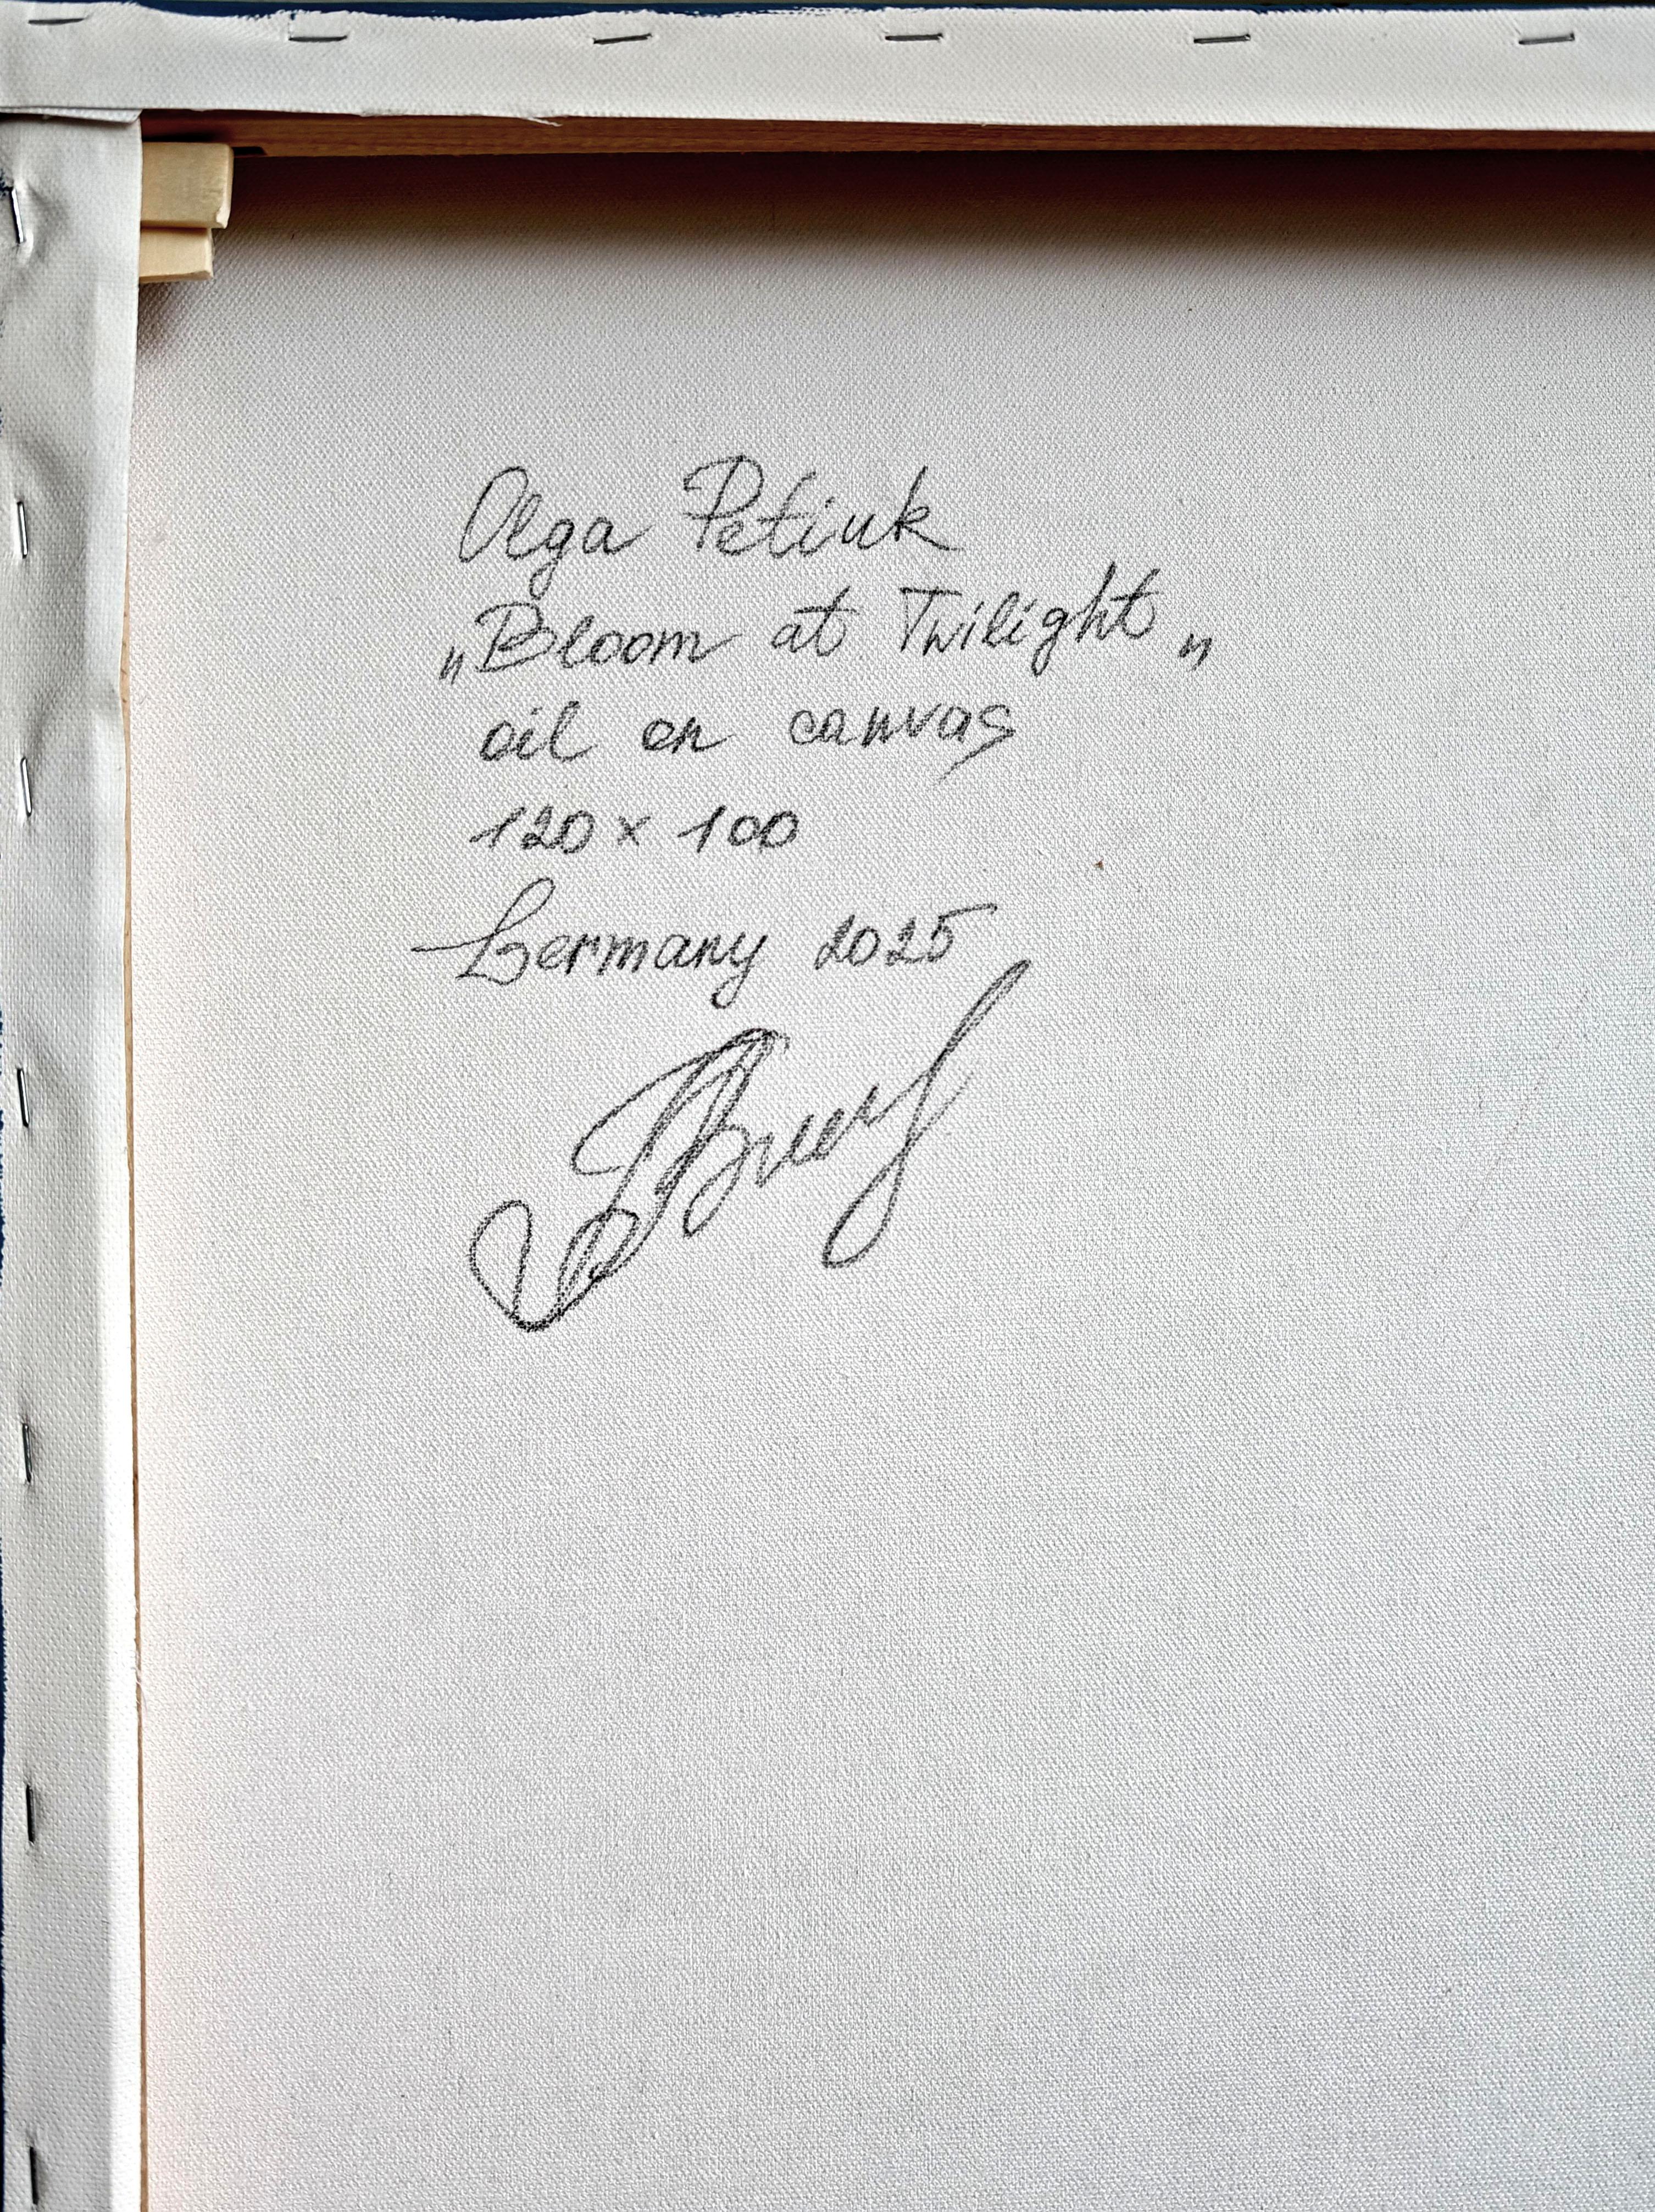 Olga Petiuk
„Bloom at Twilight„
oil on canvas
120 x 100
Germany 2025